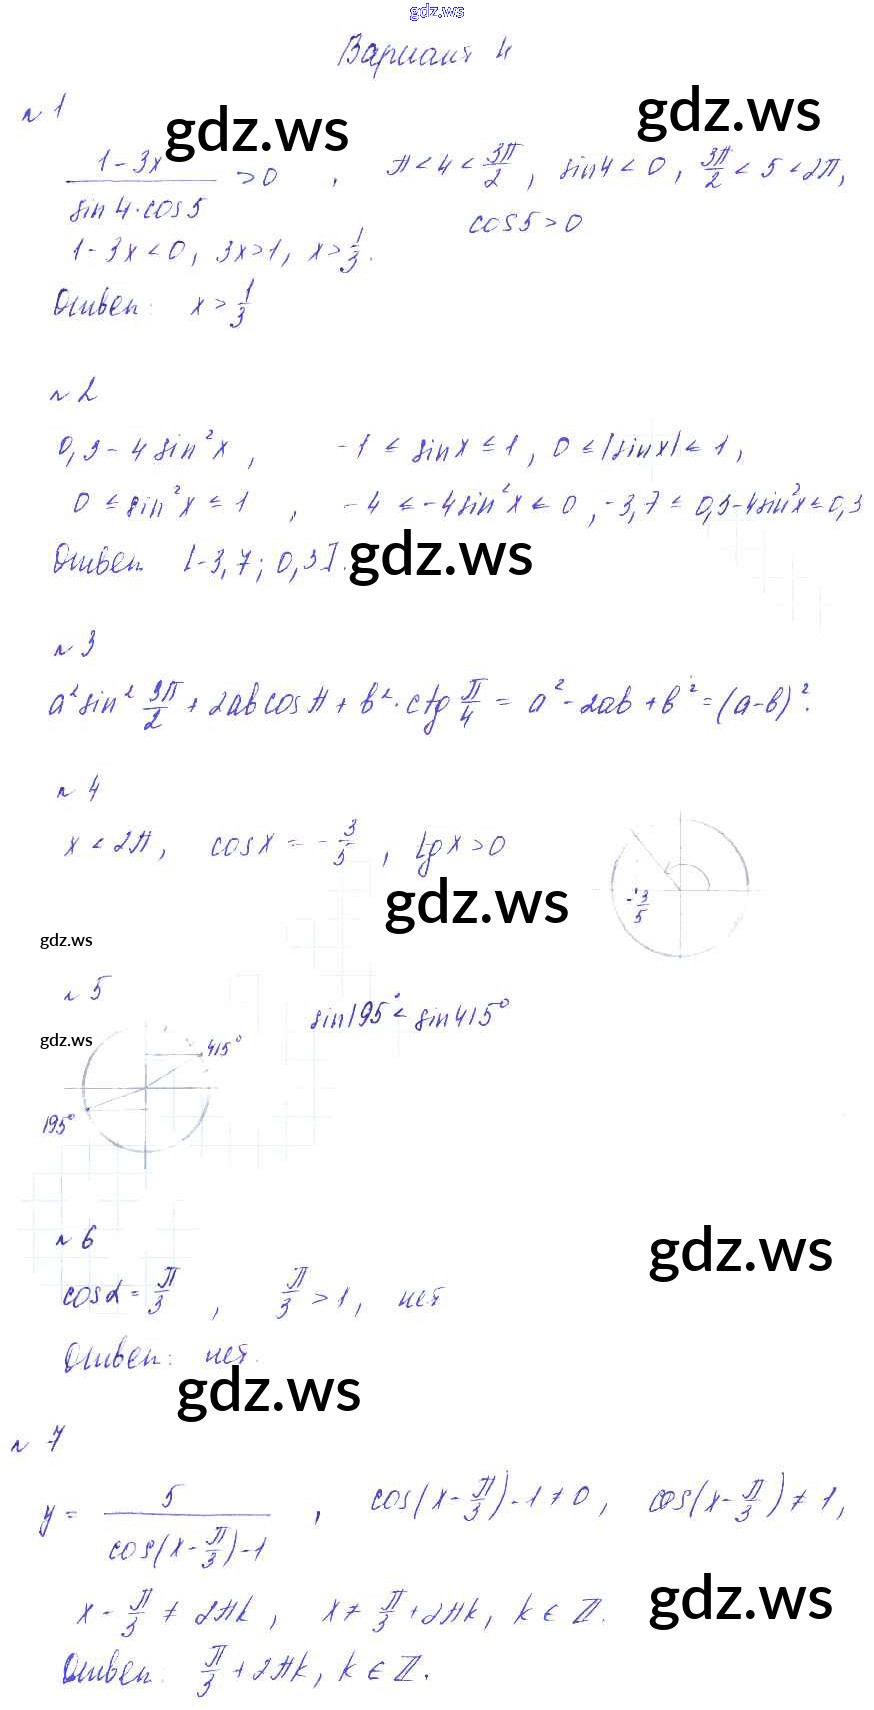 gdz.ws
Вариант 4
№ 1
gdz.ws
gdz.ws
(1-3x)/(sin4·cos5) > 0, π < 4 < 3π/2, sin4 < 0, 3π/2 < 5 < 2π,
cos5 > 0
1-3x < 0, 3x > 1, x > 1/3.
Ответ: x > 1/3
№ 2
0,3 - 4sin²x, -1 ≤ sinx ≤ 1, 0 ≤ |sinx| ≤ 1,
0 ≤ sin²x ≤ 1, -4 ≤ -4sin²x ≤ 0, -3,7 ≤ 0,3-4sin²x ≤ 0,3
Ответ [-3,7; 0,3].
gdz.ws
№ 3
a² sin² 3π/2 + 2ab cosπ + b²·ctg π/4 = a² - 2ab + b² = (a-b)².
№ 4
x < 2π, cosx = -3/5, tgx > 0
-3/5
gdz.ws
gdz.ws
№ 5
sin195° < sin415°
gdz.ws
415°
195°
№ 6
gdz.ws
cosα = π/3, π/3 > 1, нет
Ответ: нет.
gdz.ws
№ 7
y = 5/(cos(x-π/3)-1), cos(x-π/3)-1 ≠ 0, cos(x-π/3) ≠ 1,
x - π/3 ≠ 2πk, x ≠ π/3 + 2πk, k ∈ Z.
gdz.ws
Ответ: π/3 + 2πk, k ∈ Z.